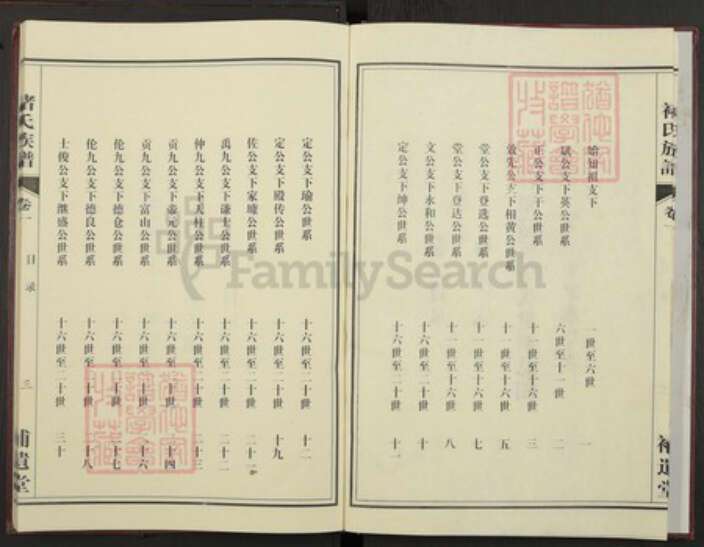 褚氏族譜
卷一
補遺堂
始知福支下 一世至六世 一
斌公支下英公世系 六世至十一世 二
正公支下干公世系 十一世至十六世 三
敬先公支下相黄公世系 十一世至十六世 五
堂公支下登选公世系 十一世至十六世 七
堂公支下登达公世系 十一世至十六世 八
文公支下永和公世系 十六世至二十世 十
定公支下绅公世系 十六世至二十世 十一
定公支下瑜公世系 十六世至二十世 十二
定公支下殿传公世系 十六世至二十世 十九
佐公支下家㻞公世系 十六世至二十世 二十一
禹九公支下谦士公世系 十六世至二十世 二十二
仲九公支下天柱公世系 十六世至二十世 二十三
贡九公支下壶元公世系 十六世至二十世 二十四
贡九公支下富山公世系 十六世至二十世 二十六
伦九公支下德仓公世系 十六世至二十世 二十七
伦九公支下德良公世系 十六世至二十世 二十八
士俊公支下继盛公世系 十六世至二十世 三十
褚氏族譜
卷一
目录
三
補遺堂
FamilySearch